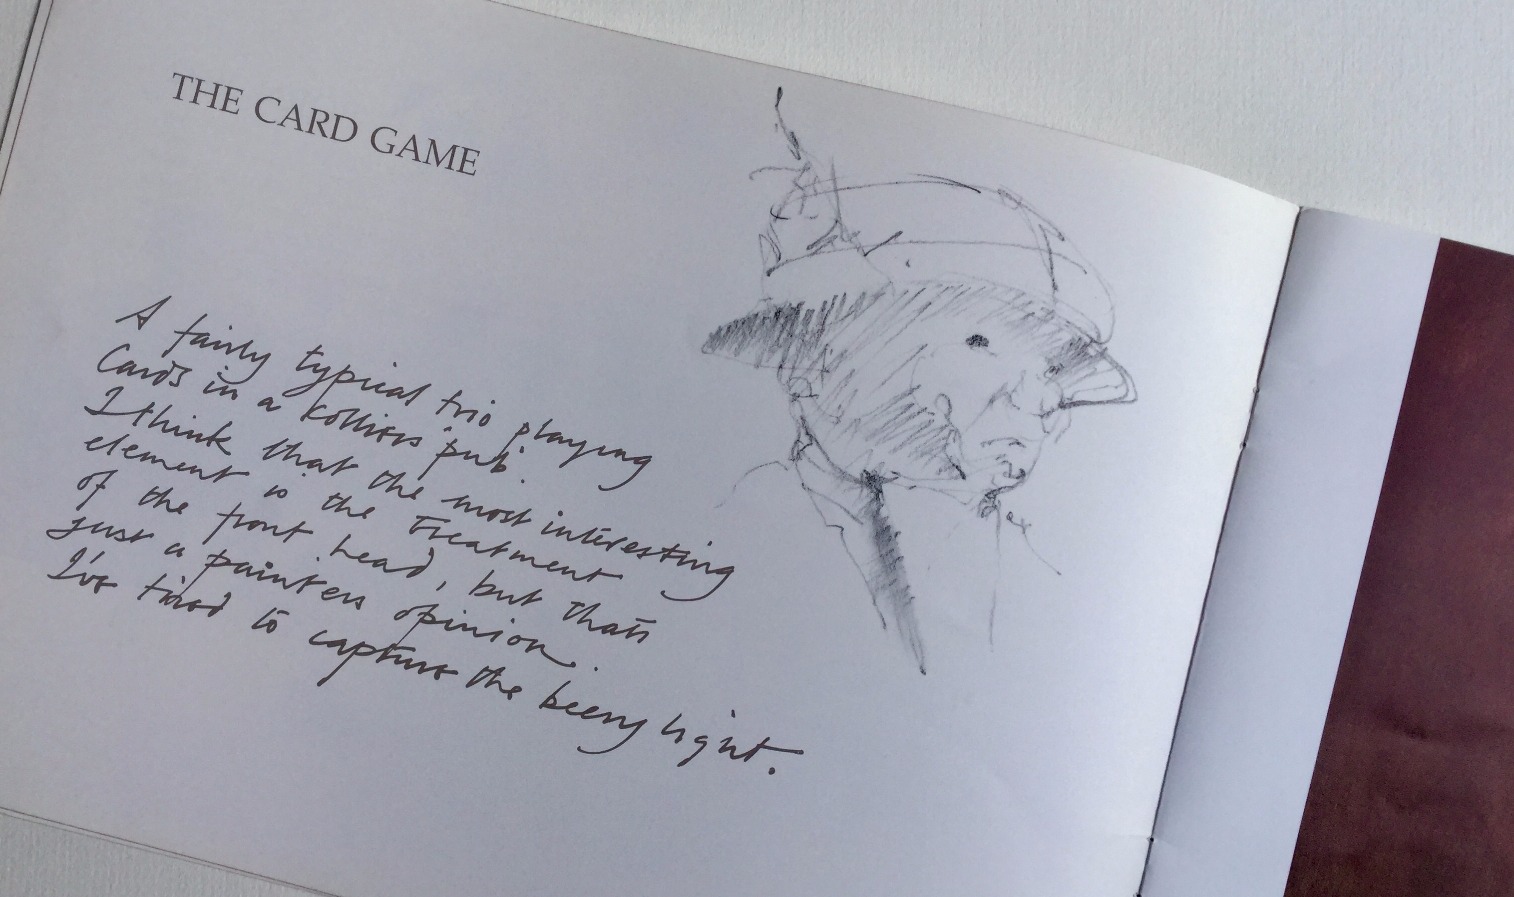 THE CARD GAME
A fairly typical trio playing
Cards in a Kolliers pub.
I think that the most interesting
element is the Treatment
of the front head, but thats
just a painters opinion.
I've tried to capture the beery light.